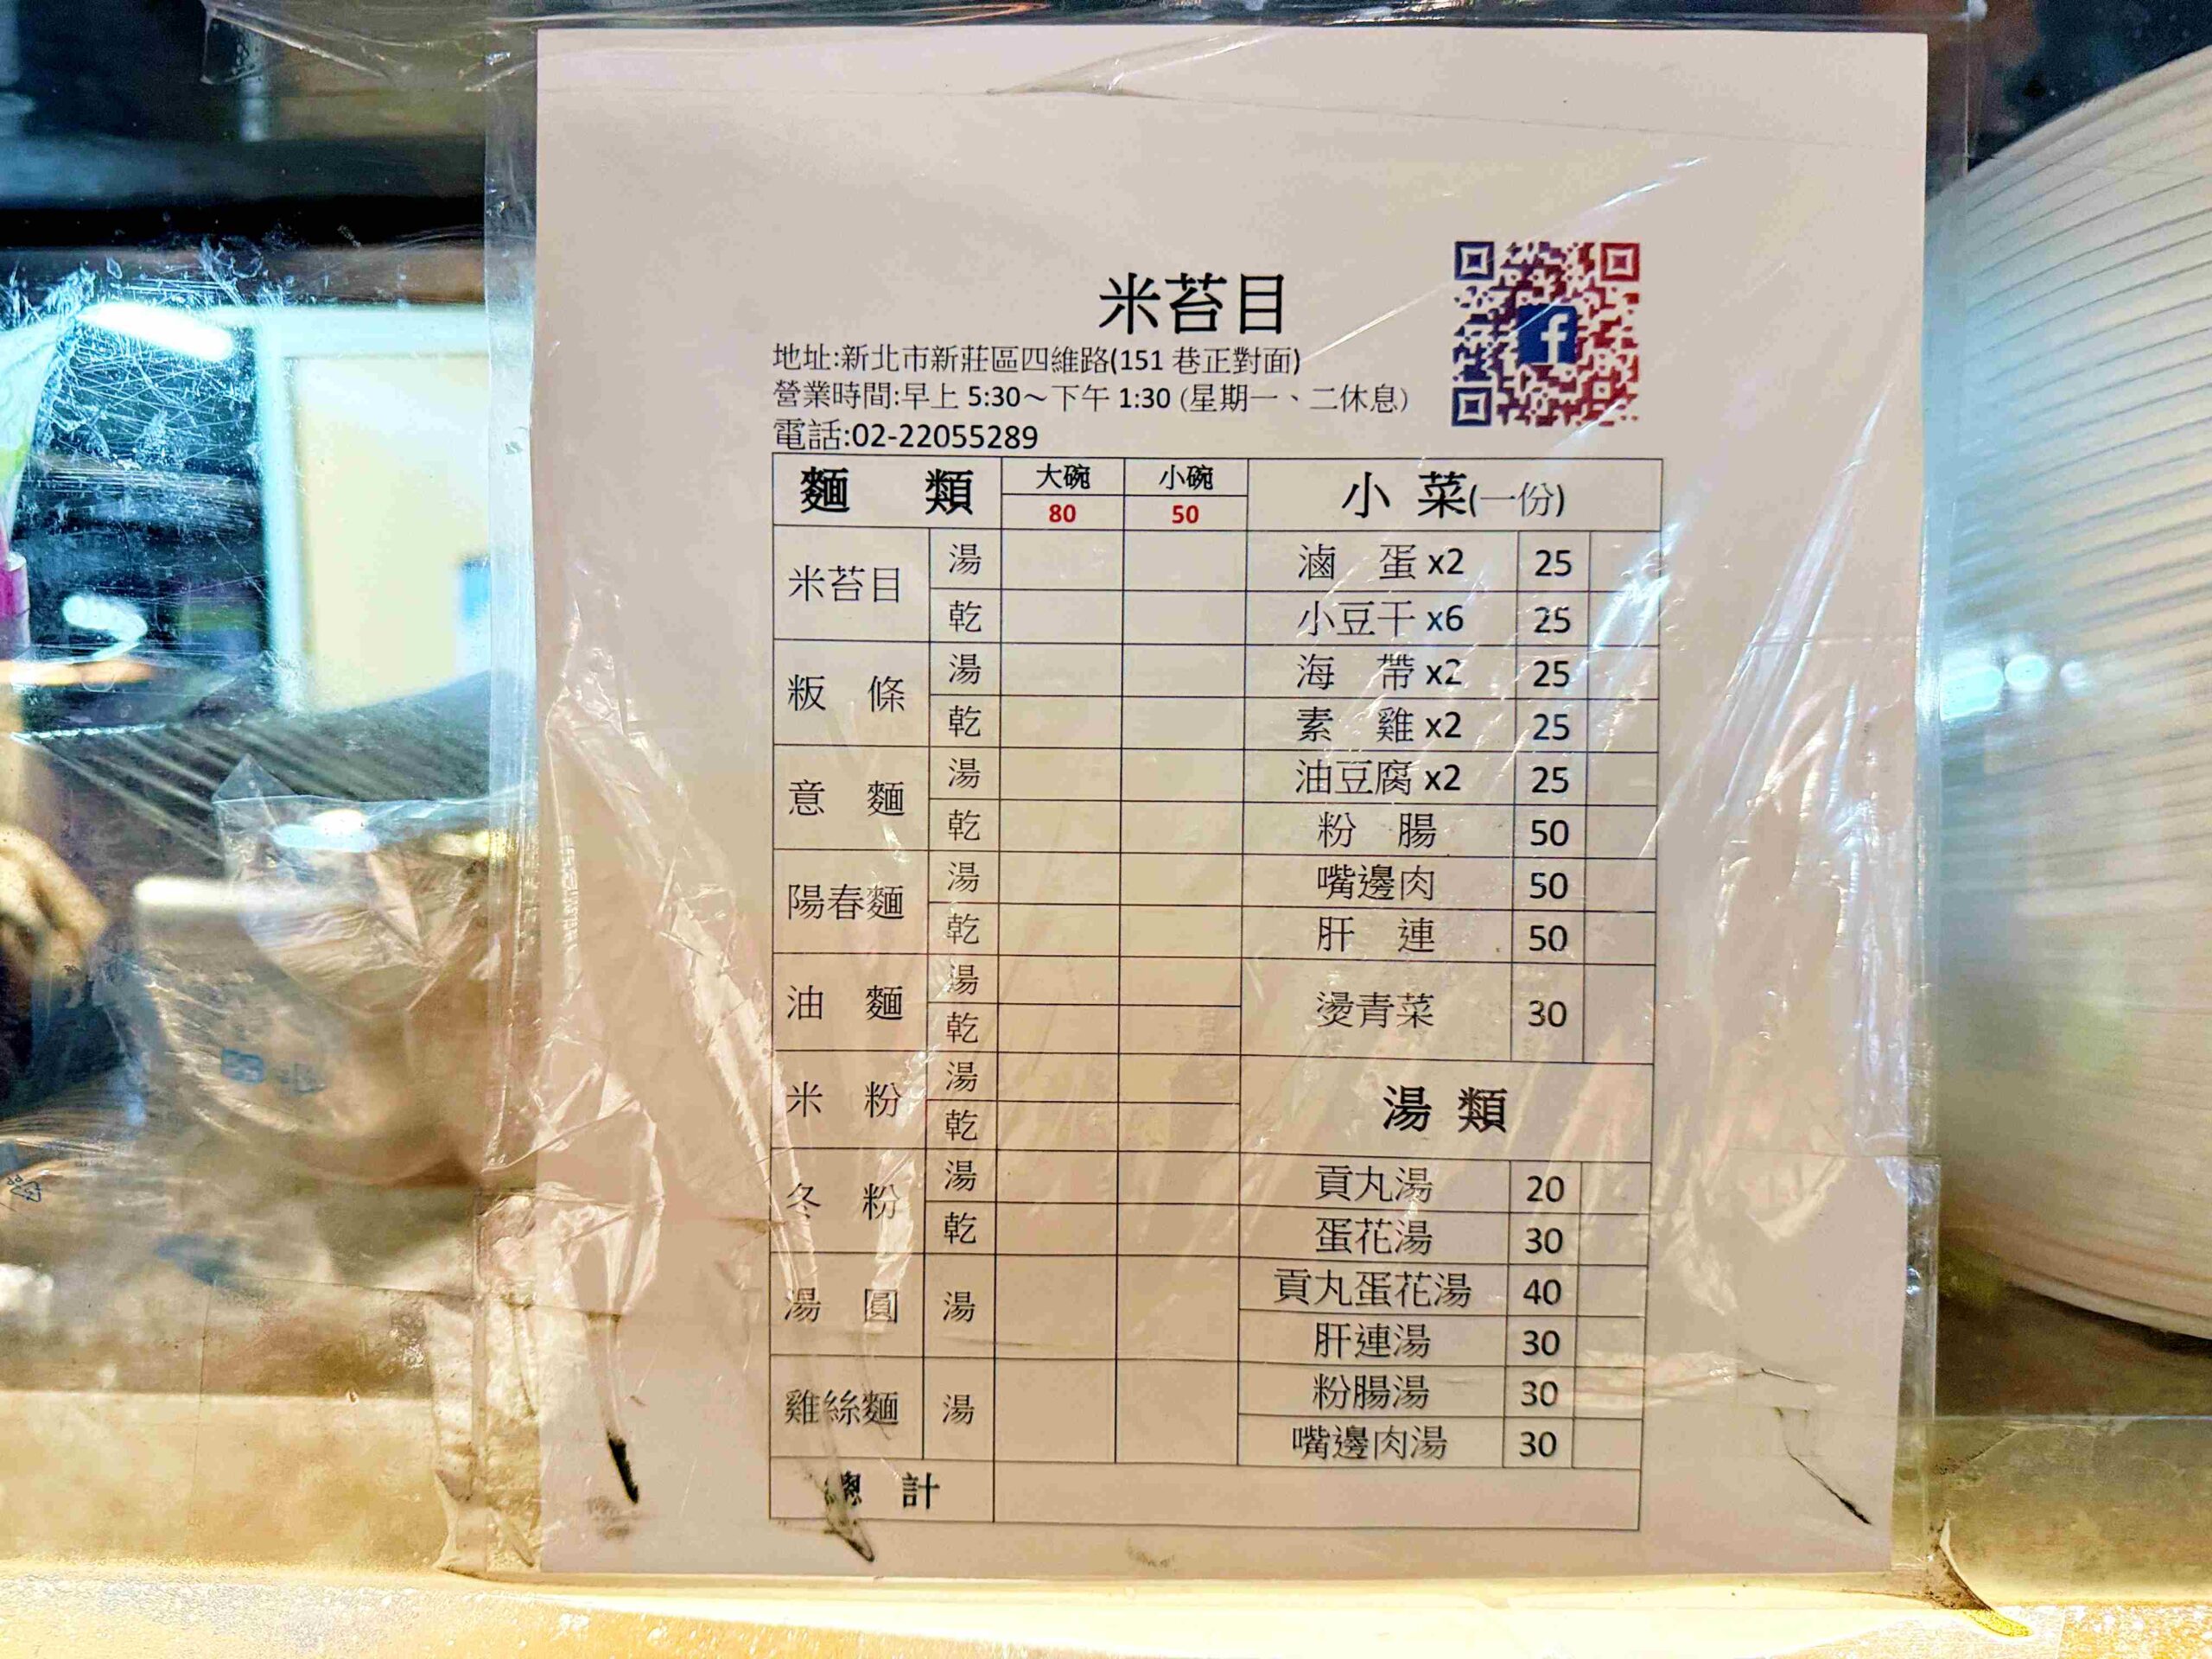 米苔目
地址:新北市新莊區四維路(151 巷正對面)
營業時間:早上 5:30～下午 1:30 (星期一、二休息)
電話:02-22055289
麵 類 大碗 小碗 小 菜(一份)
80 50
米苔目 湯 滷 蛋 x2 25
乾 小豆干 x6 25
粄 條 湯 海 帶 x2 25
乾 素 雞 x2 25
意 麵 湯 油豆腐 x2 25
乾 粉 腸 50
陽春麵 湯 嘴邊肉 50
乾 肝 連 50
油 麵 湯 燙青菜 30
乾
米 粉 湯 湯 類
乾
冬 粉 湯 貢丸湯 20
乾 蛋花湯 30
湯 圓 湯 貢丸蛋花湯 40
肝連湯 30
雞絲麵 湯 粉腸湯 30
嘴邊肉湯 30
總 計